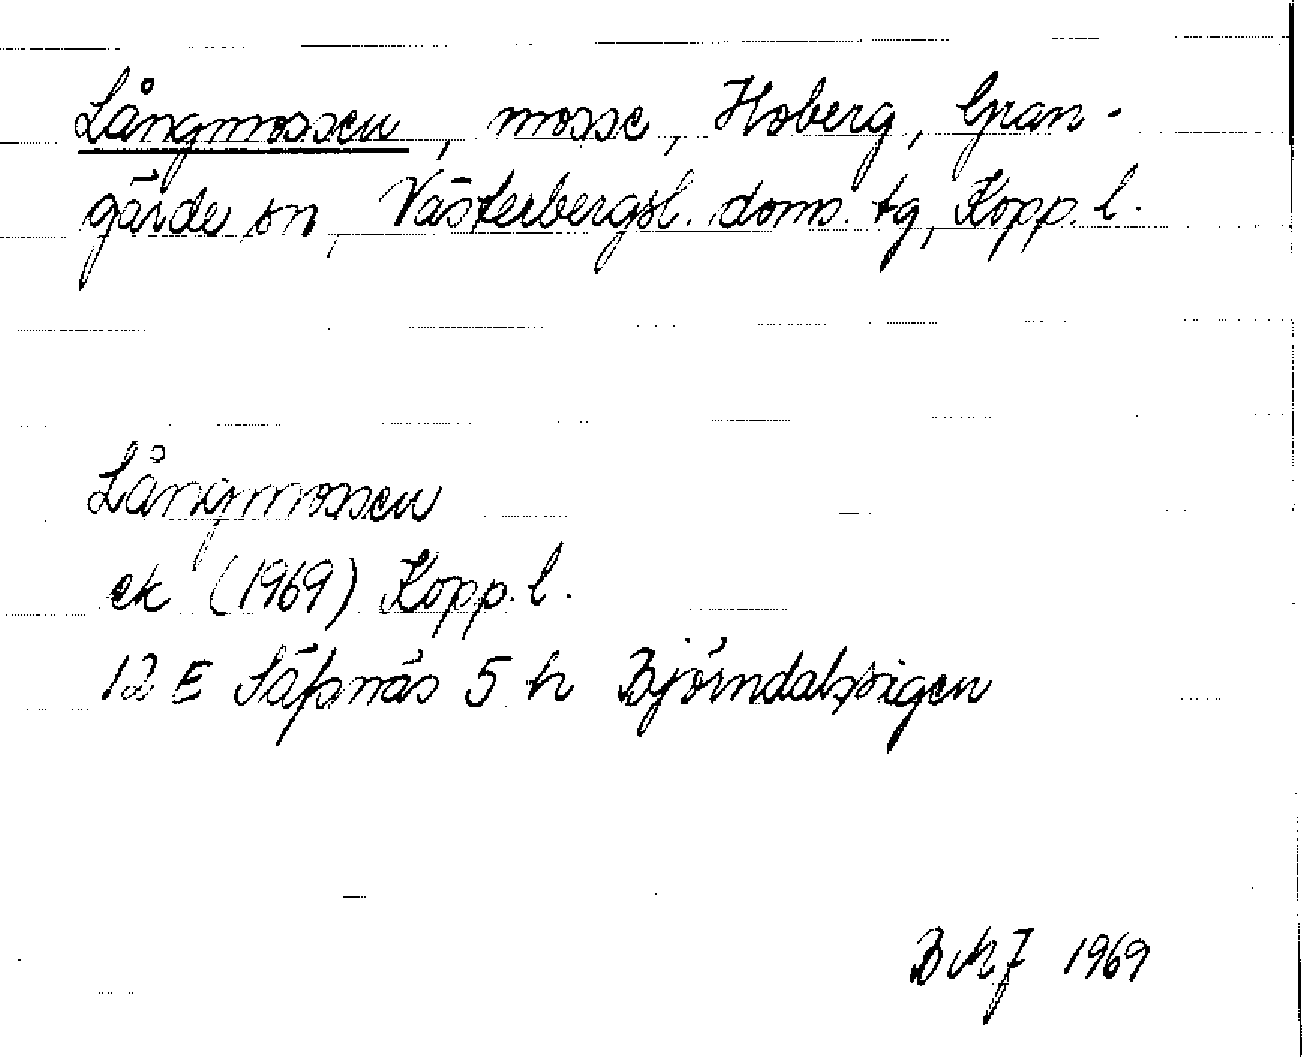 Långmossen, mosse, Hoberg, Gran-
gärde sn, Västerbergsl. doms. tg, Kopp. l.
Långmossen
ek (1969) Kopp. l.
12 E Säfsnäs 5 h Björndalssigen
1969